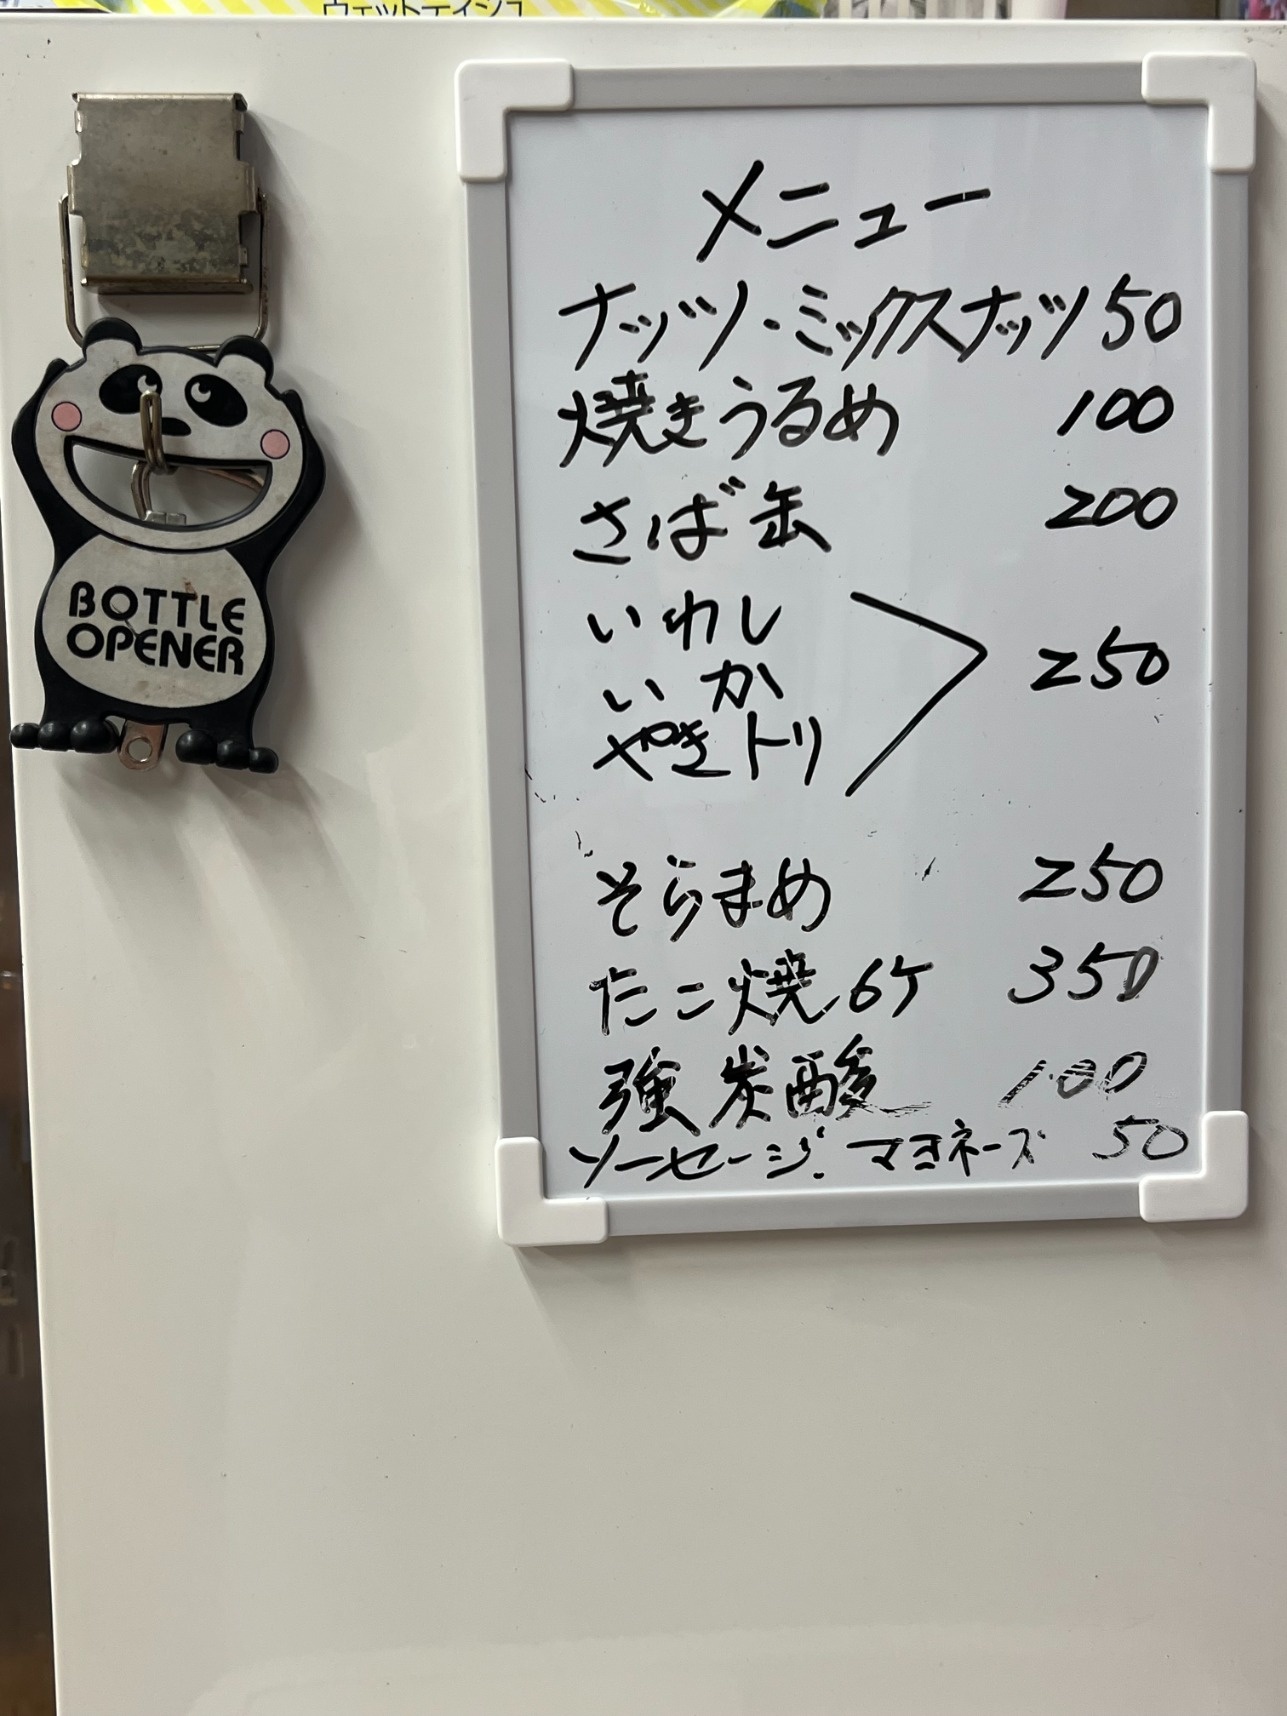 ウェットティシュ
BOTTLE
OPENER
メニュー
ナッツ・ミックスナッツ 50
焼きうるめ 100
さば缶 200
いわし
いか
やきトリ
250
そらまめ 250
たこ焼 6ケ 350
強炭酸 100
ソーセージ.マヨネーズ 50